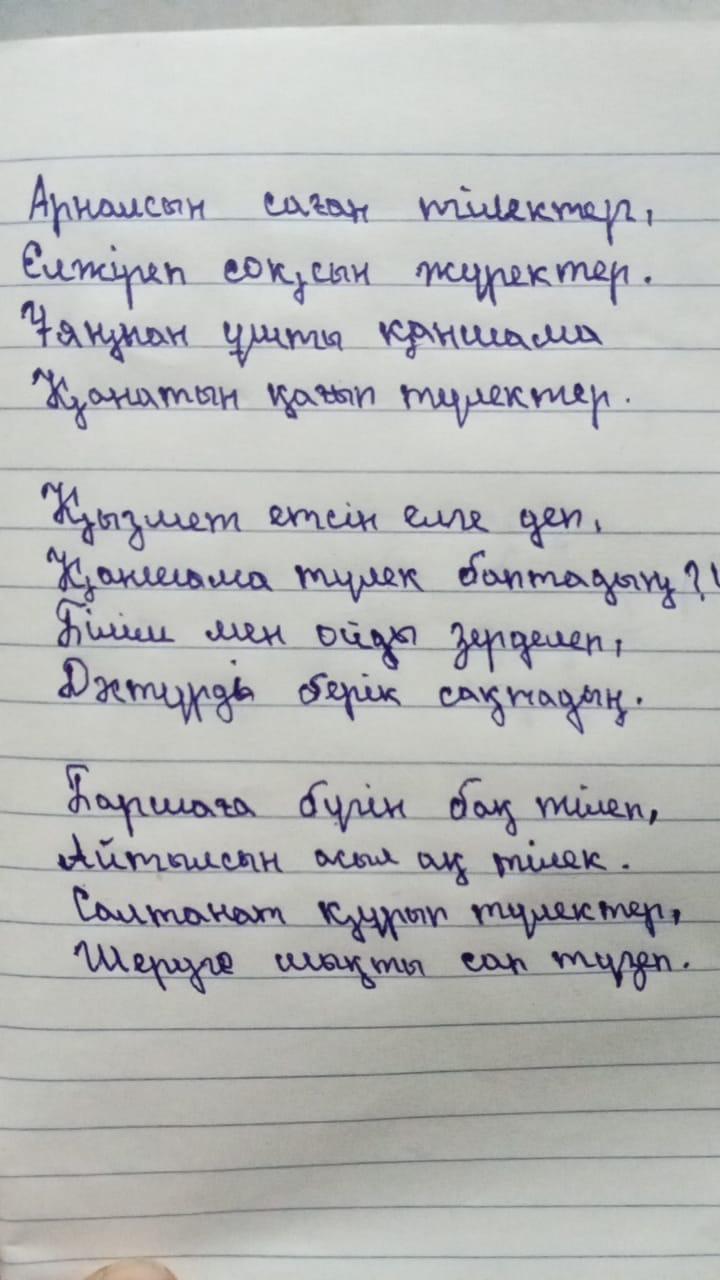 Арналсын саған тілектер,
Елжіреп соқсын жүректер.
Ұяңнан ұшты қаншама
Қанатын қағып түлектер.
Қызмет етсін елге деп,
Қаншама түлек баптадың?!
Білім мен ойды зерделеп,
Дәстүрді берік сақтадың.
Баршаға бүгін бақ тілеп,
Айтылсын асыл ақ тілек.
Салтанат құрып түлектер,
Шеруге шықты сап түзеп.